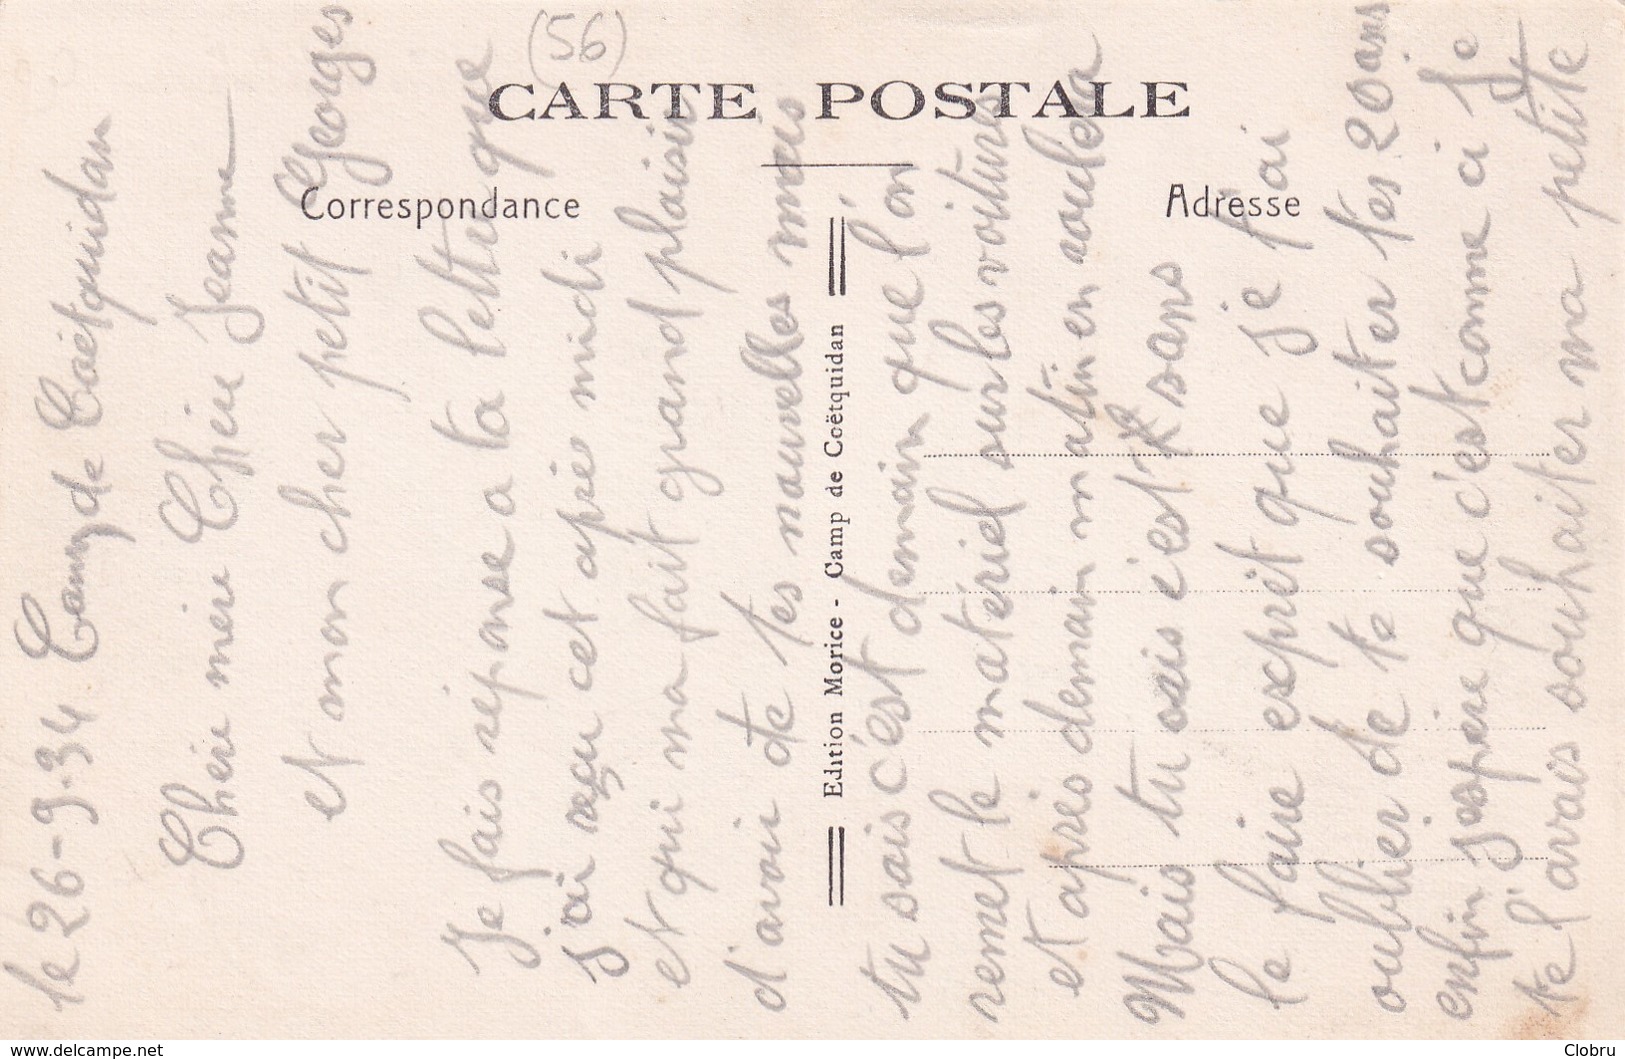 (56)
CARTE POSTALE
Correspondance
Adresse
Edition Morice - Camp de Coëtquidan
le 26-9-34 Camp de Coëtquidan
Chère mère Chère Jeanne
et mon cher petit Georges
Je fais réponse a ta lettre que
j'ai reçu cet après midi
et qui ma fait grand plaisir
d'avoir de tes nouvelles mais
tu sais c'est demain que l'on
remet le matériel sur les voitures
et après demain matin en route la
Mais tu sais c'est sans
le faire exprèt que je t'ai
oublier de te souhaiter tes 20 ans
enfin j'espère que c'est comme ci Je
te l'avais souhaiter ma petite
www.delcampe.net
Clobru